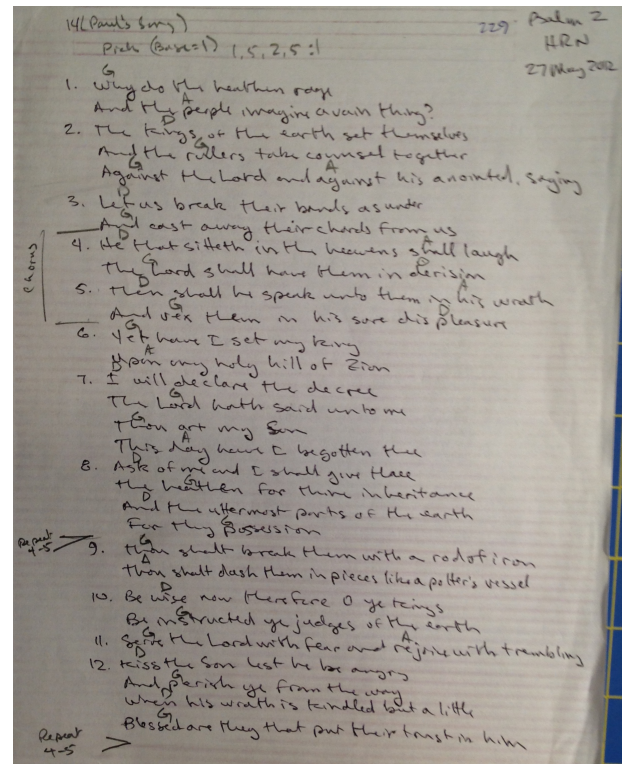 14 (Paul's Song)
229. Psalm 2
Pick (Base=1) 1,5,2,5:1
HRN
27 May 2012
G
1. Why do the heathen rage
A
And the people imagine a vain thing?
D
2. The kings of the earth set themselves
G
And the rulers take counsel together
G A
Against the Lord and against his anointed, saying
D
3. Let us break their bands asunder
G
And cast away their chords from us
Chorus
D A
4. He that sitteth in the heavens shall laugh
G D
The Lord shall have them in derision
D A
5. Then shall he speak unto them in his wrath
G D
And vex them in his sore displeasure
G
6. Yet have I set my king
A
Upon my holy hill of Zion
D
7. I will declare the decree
G
The Lord hath said unto me
G
Thou art my Son
A
This day have I begotten thee
D
8. Ask of me and I shall give thee
G
the heathen for thine inheritance
D
And the uttermost parts of the earth
G
For thy possession
Repeat
4-5
G
9. Thou shalt break them with a rod of iron
A
Thou shalt dash them in pieces like a potter's vessel
D
10. Be wise now therefore O ye kings
G
Be instructed ye judges of the earth
G A
11. Serve the Lord with fear and rejoice with trembling
D
12. Kiss the Son lest he be angry
G
And perish ye from the way
D
When his wrath is kindled but a little
G
Blessed are they that put their trust in him
Repeat
4-5